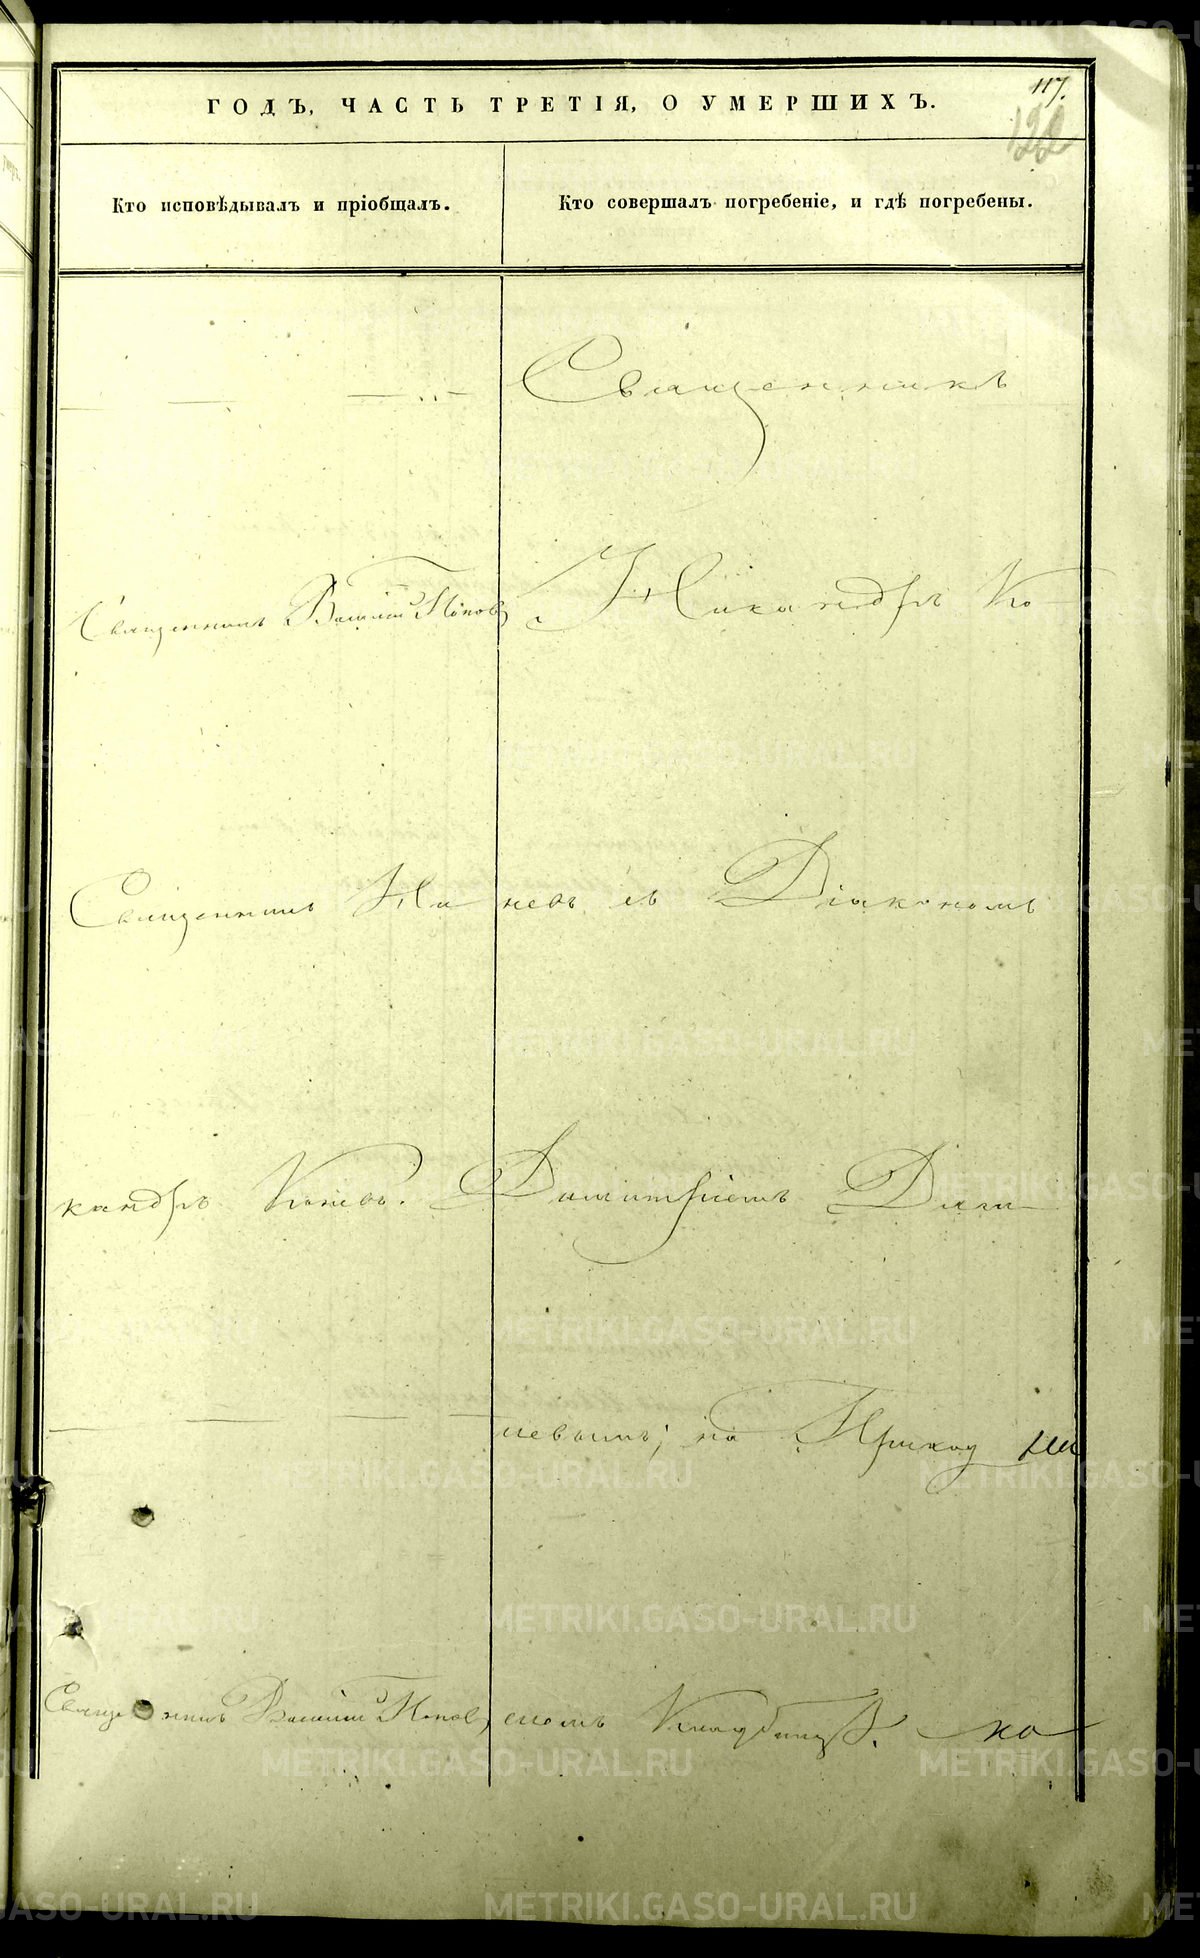 117.
122
ГОДЪ, ЧАСТЬ ТРЕТІЯ, О УМЕРШИХЪ.
Кто исповѣдывалъ и пріобщалъ.
Кто совершалъ погребеніе, и гдѣ погребены.
Священникъ
Священникъ Василій Поповъ
Никандръ Ко-
Священникъ Ни-
невъ съ Діакономъ
кандръ Коневъ.
Димитріемъ Дяги-
левымъ; на Приход
Священникъ Василій Поповъ
скомъ Кладбищѣ.
METRIKI.GASO-URAL.RU